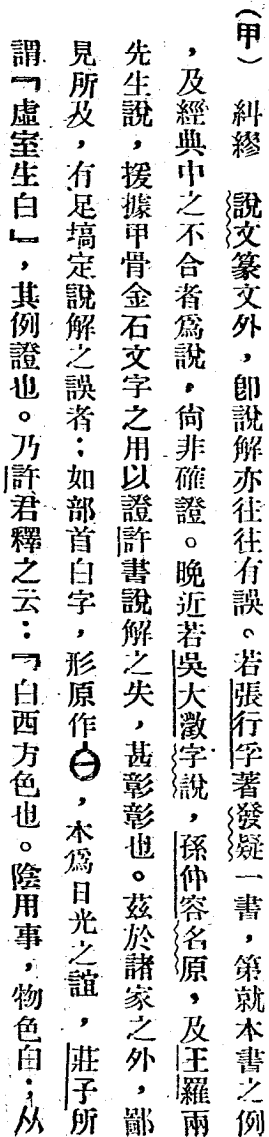 （甲）　糾繆　說文篆文外，卽說解亦往往有誤。若張行孚著發疑一書，第就本書之例
，及經典中之不合者爲說，尙非確證。晚近若吳大澂字說，孫仲容名原，及王羅兩
先生說，援據甲骨金石文字之用以證許書說解之失，甚彰彰也。茲於諸家之外，鄙
見所及，有足搞定說解之誤者：如部首白字，形原作，本爲日光之誼，莊子所
謂『虛室生白』，其例證也。乃許君釋之云：『白西方色也。陰用事，物色白；从